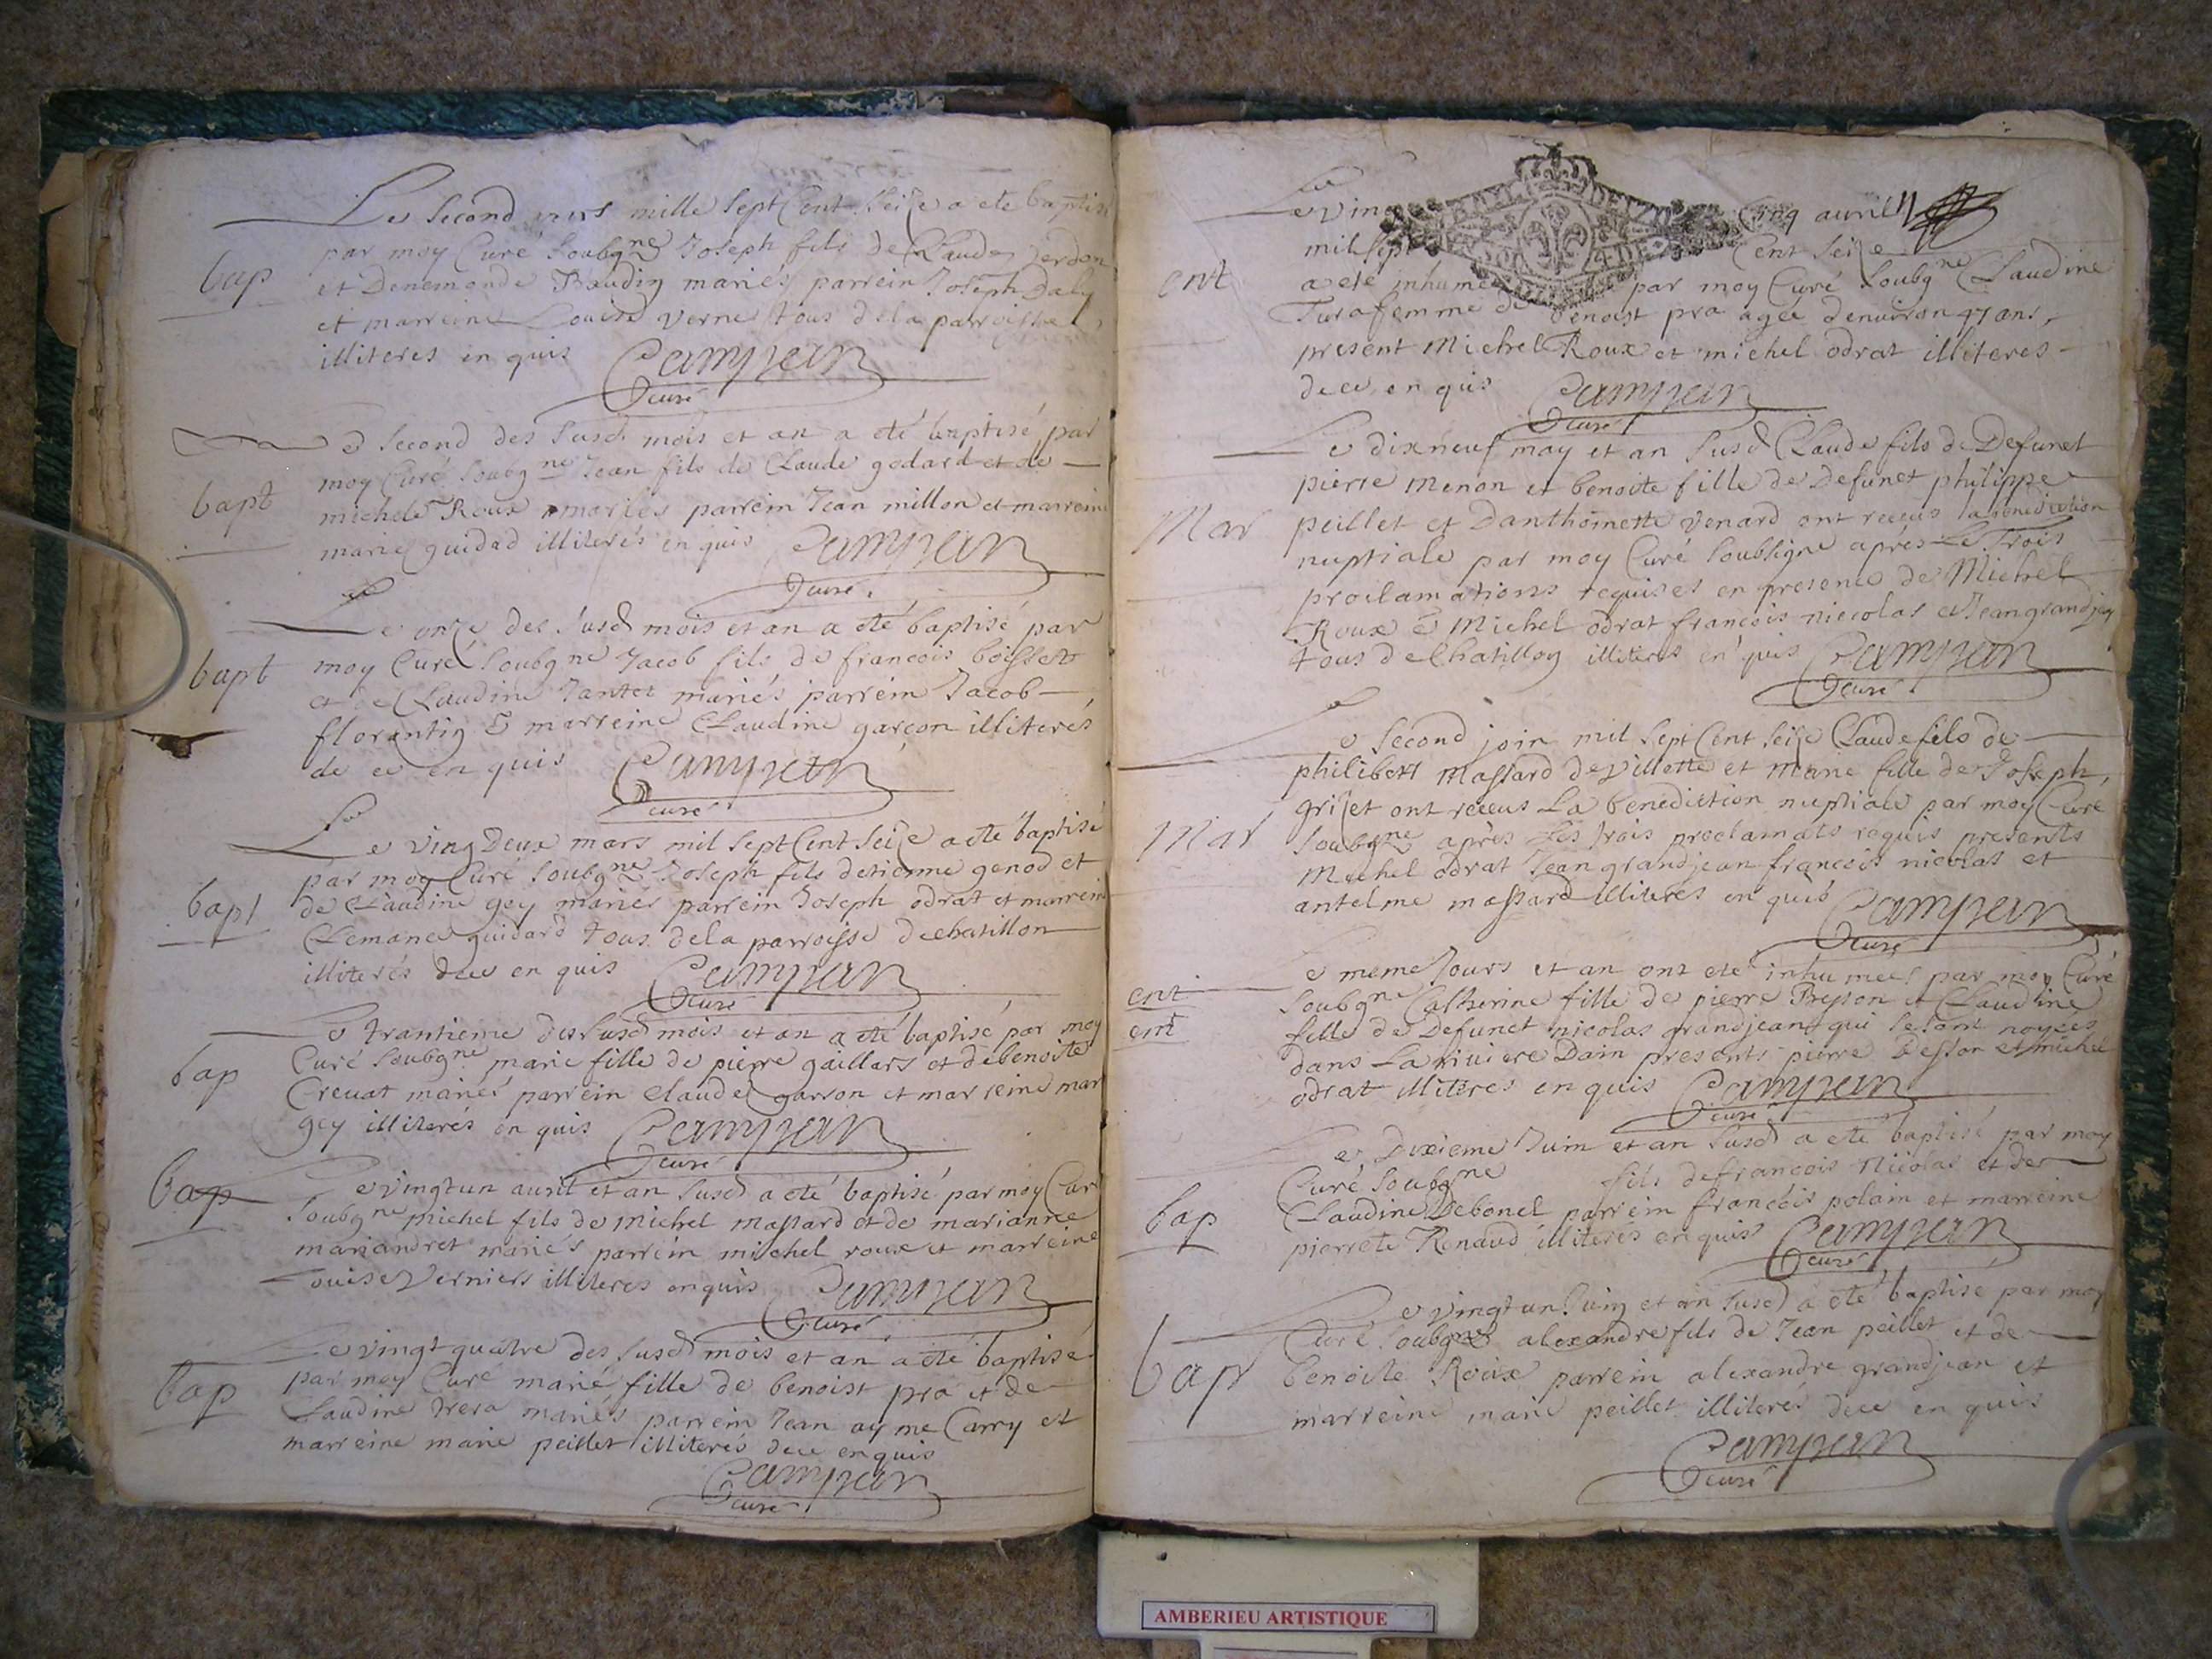 Le second mars mille sept Cent Seize a ete baptisé
bap
par moy Curé Soubgne Joseph fils de Claude verdon
et Denemonde Baudin mariés parrein Joseph Daly
et marreine Louise verne tous dela parroisse
illiteres en quis Campean
curé
Le second des susd mois et an a eté baptisé par
bapt
moy Curé Soubgne Jean fils de Claude godard et de
michele Roux mariés parrein Jean millon et marreine
marie guidad illiterés en quis Campean
curé
Le onze des susd mois et an a eté baptisé par
bapt
moy Curé Soubgne Jacob fils de francois boisset
et de Claudine Jantet mariés parrein Jacob
florentin & marreine Claudine garçon illiterés
de ce en quis Campean
curé
Le vingdeux mars mil sept Cent Seize a eté baptisé
bapt
par moy Curé Soubgne Joseph fils detienne genod et
de Claudine gey mariés parrein Joseph odrat et marreine
Clemance guidard tous dela parroisse dechatillon
illiterés dece en quis Campean
curé
Le trantieme des susd mois et an a eté baptisé par moy
bap
Curé Soubgne marie fille de pierre gaillars et debenoite
Creuat mariés parrein Claude garson et marreine mar
gey illiterés en quis Campean
curé
bap
Le vingtun auril et an susd a eté baptisé par moy Curé
Soubgne michel fils de michel massard et de marianne
mariandret mariés parrein michel roux et marreine
Louise Verniers illiteres enquis Campean
curé
Le vingt quatre des susd mois et an a eté baptisé
bap
par moy Curé marie fille de benoist pra et de
Claudine trera mariés parrein Jean ayme Carry et
marreine marie peillet illiterés dece enquis
Campean
curé
Le vingt Cinq auril
mil sept Cent Seize
ent
a eté inhumé par moy Curé Soubgne Claudine
Tura femme de benoist pra agée denuiron 47 ans,
present Michel Roux et michel odrat illiteres
dece en quis Campean
curé
Le dixneuf may et an susd Claude fils de Defunct
pierre menon et benoite fille de Defunct philippe
Mar
peillet et Danthoinette venard ont receus la benediction
nuptiale par moy Curé Soubsigne aprés Le Trois
proclamations requises en presence de Michel
Roux & Michel odrat francois niccolas et Jean grandjean
tous dechatillon illiteres en quis Campean
curé
Le second join mil sept Cent seize Claude fils de
philibert massard devillette et Marie fille de Joseph
grizet ont receus La benediction nuptiale par moy Curé
Mar
Soubgne aprés Les trois proclamats requis presents
Michel odrat Jean grandjean francois nicolas et
antelme massard illiteres en quis Campean
curé
Le meme Jours et an ont eté inhumees par moy Curé
ent
Soubgne Catherine fille de pierre Besson et Claudine
ent
fille de Defunct nicolas grandjean qui se sont noyees
dans La riviere Dain presents pierre Besson et michel
odrat illiteres en quis Campean
curé
Le Dixieme Juin et an susd a eté baptisé par moy
Curé Soubgne fils defrancois Nicolas et de
bap
Claudine Debonel parrein francois polain et marreine
pierrete Renaud illiterés enquis Campean
curé
Le vingtun Juin et an susd a eté baptisé par moy
Curé Soubgne alexandre fils de Jean peillet et de
bap
benoite Roux parrein alexandre grandjean et
marreine marie peillet illiterés dece en quis
Campean
curé
AMBERIEU ARTISTIQUE